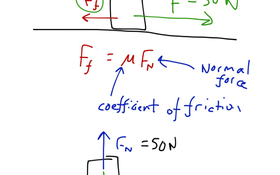 Ff F = 50N
Ff = μ FN
Normal
force
coefficient of friction
FN = 50N